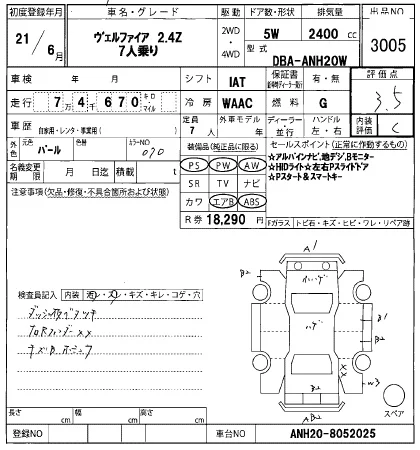 初度登録年月 車名・グレード 駆動 ドア数・形状 排気量 出品NO
21/6月 ヴェルファイア 2.4Z 7人乗り 2WD・4WD 5W 2400cc 3005
型式 DBA-ANH20W
車検 年 月 シフト IAT 保証書 有・無 評価点 3.5
走行 7万4千670 キロ・マイル 冷房 WAAC 燃料 G
車歴 自家用・レンタ・事業用( ) 定員 7人 外車 ディーラー・並行 ハンドル 左・右 内装評価 C
外色 元色 パール 色替 カラーNO 070
名義変更期限 月 日迄 積載 t
注意事項(欠品・修復・不具合箇所および状態)
装備品(純正品に限る)
PS PW AW
SR TV ナビ
カワ エアB ABS
R券 18,290円
セールスポイント(正常に作動するもの)
☆アルパインナビ,地デジ,Bモニター
☆HIDライト☆左右Pスライドドア
☆Pスタート&スマートキー
Fガラス トビ石・キズ・ヒビ・ワレ・リペア跡
検査員記入 内装 汚レ・スレ・キズ・キレ・コゲ・穴
A1
B2
ハゲ
B1
B2
XX
W3
B2
AB2
スペア
長さ cm 幅 cm 高さ cm
登録NO 車台NO ANH20-8052025